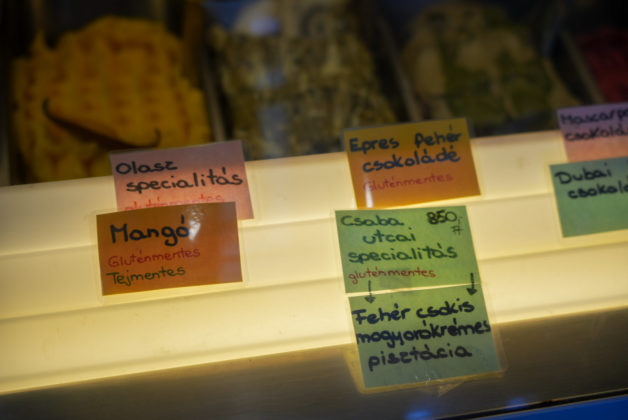 Olasz
specialitás
gluténmentes
Mangó
Gluténmentes
Tejmentes
Epres fehér
csokoládé
Gluténmentes
Csaba 850,-
utcai
specialitás
gluténmentes
Fehér csokis
mogyorókrémes
pisztácia
Dubai